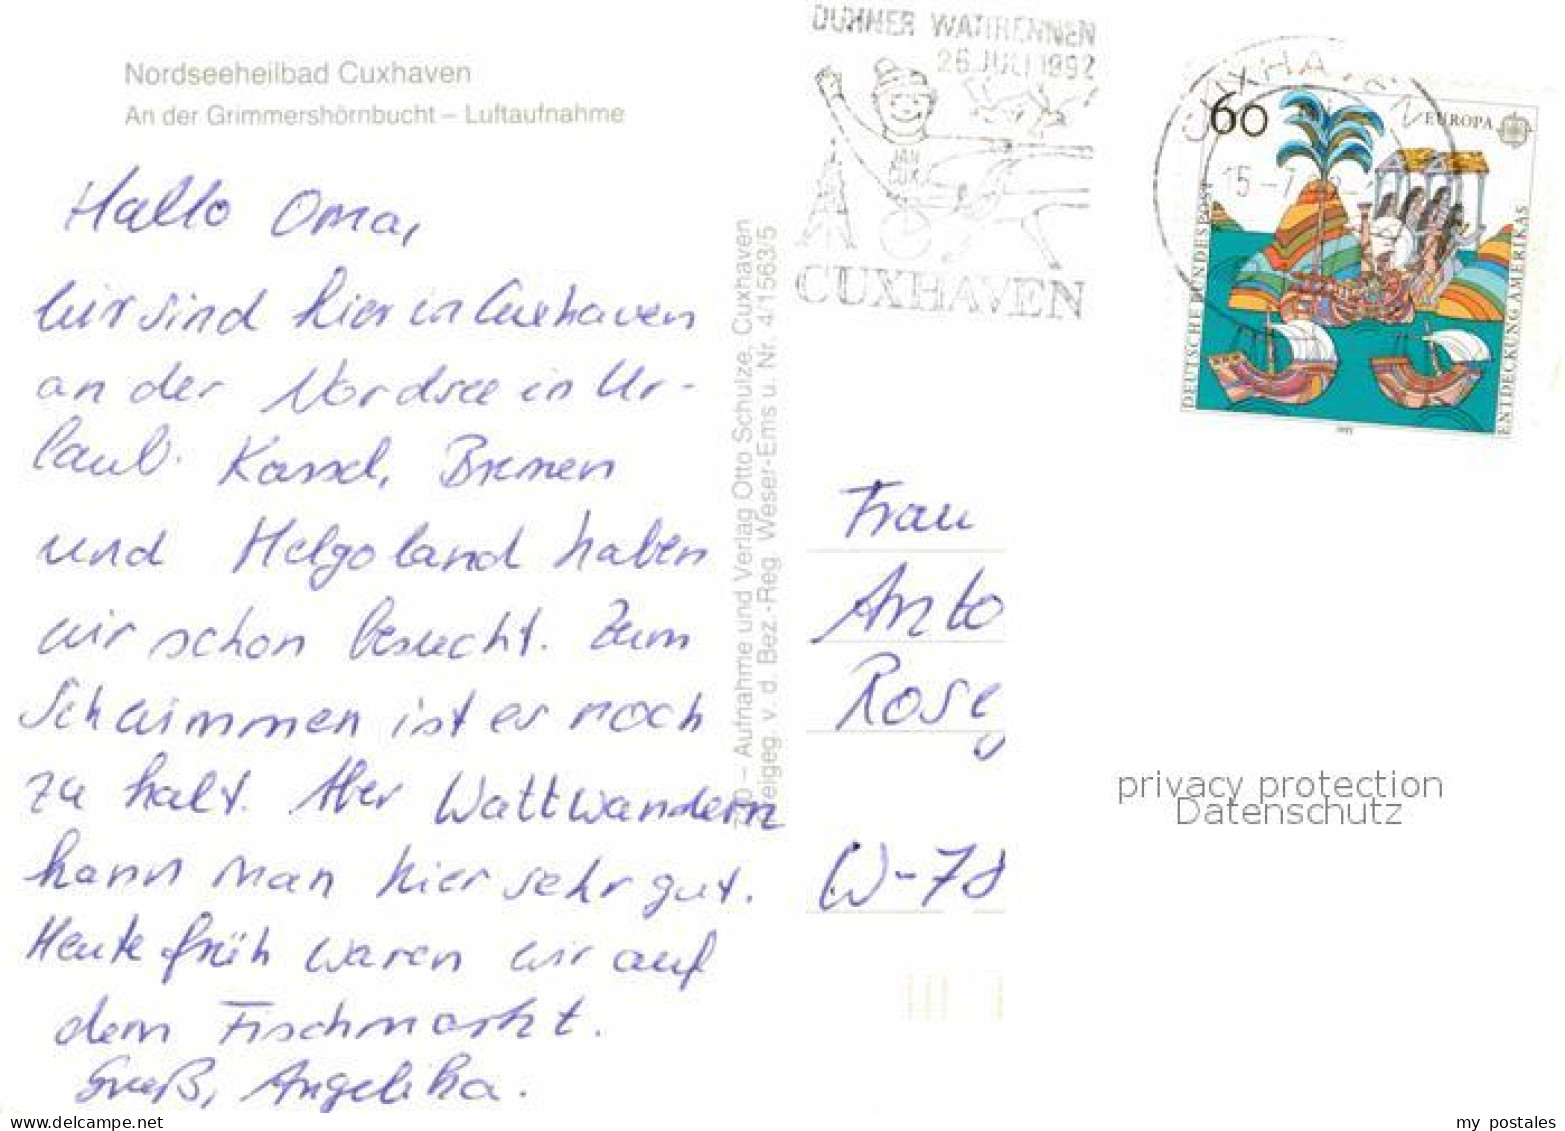 Nordseeheilbad Cuxhaven
An der Grimmershörnbucht – Luftaufnahme
Hallo Oma,
wir sind hier in Cuxhaven
an der Nordsee in Ur-
laub. Kassel, Bremen
und Helgoland haben
wir schon besucht. Zum
Schwimmen ist es noch
zu kalt. Aber Wattwandern
kann man hier sehr gut.
Heute früh waren wir auf
dem Fischmarkt.
Gruß, Angelika.
– Aufnahme und Verlag Otto Schulze, Cuxhaven
Freigeg. v. d. Bez.-Reg. Weser-Ems u. Nr. 4/1563/5
DUHNER WATTRENNEN
26 JULI 1992
JAN
CUX
CUXHAVEN
CUXHAVEN
15-7
60
EUROPA
DEUTSCHE BUNDESPOST
ENTDECKUNG AMERIKAS
1992
Frau
Anto
Rose
W-78
privacy protection
Datenschutz
www.delcampe.net
my postales